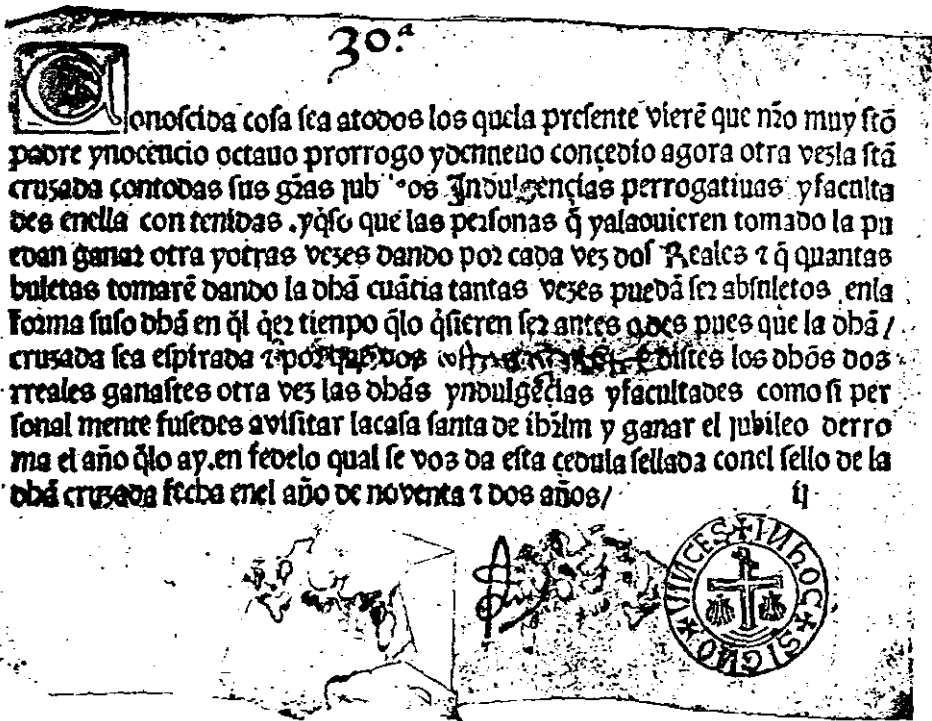 30.ª
Conoscida cosa sea atodos los quela presente vierẽ que nr̃o muy stõ
padre ynocencio octauo prorrogo ydenneuo conçedio agora otra vezla stã
cruzada contodas sus gr̃as jub os Indulgençias perrogatiuas yfaculta
des enella con tenidas .yq̃so que las personas q̃ yalaouieren tomado la pu
edan ganar otra yotras vezes dando por cada vez dos Reales ⁊ q̃ quantas
buletas tomarẽ dando la dhã cuãtia tantas vezes puedã ser absuletos enla
forma suso dhã en q̃l q̃er tienpo q̃lo q̃sieren ser antes q̃ des pues que la dhã /
cruzada sea espirada ⁊ porque vos distes los dhõs dos
rreales ganastes otra vez las dhãs yndulgẽçias yfacultades como si per
sonal mente fusedes avisitar lacasa santa de ihrlm y ganar el jubileo derro
ma el año q̃lo ay.en fedelo qual se vos da esta çedula sellada conel sello de la
dhã cruzada fecha enel año de noventa ⁊ dos años/
IN hOC + SIGNO + VINCES +